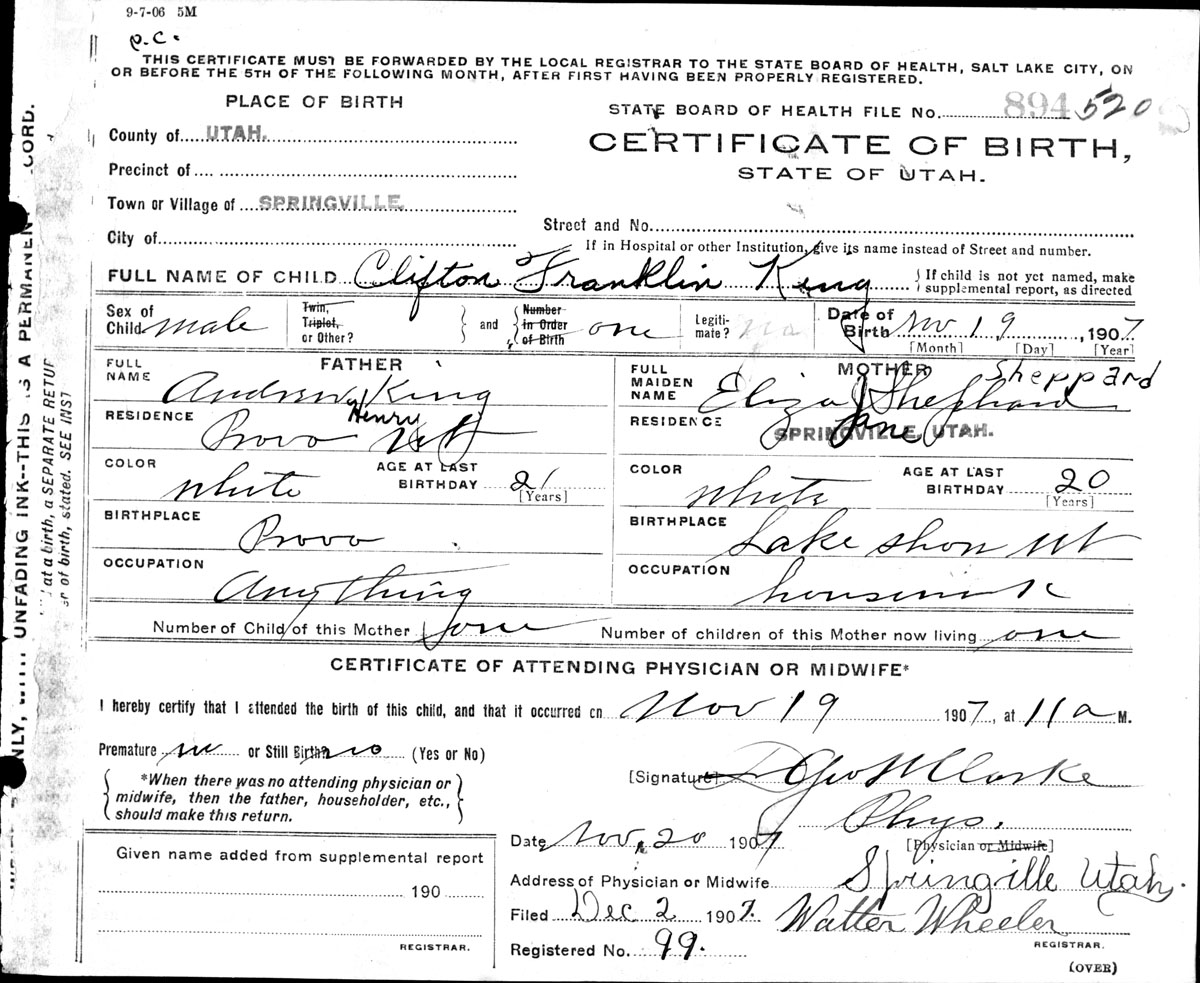 9-7-06 5M
P.C.
THIS CERTIFICATE MUST BE FORWARDED BY THE LOCAL REGISTRAR TO THE STATE BOARD OF HEALTH, SALT LAKE CITY, ON
OR BEFORE THE 5TH OF THE FOLLOWING MONTH, AFTER FIRST HAVING BEEN PROPERLY REGISTERED.
PLACE OF BIRTH
STATE BOARD OF HEALTH FILE No. 894 520
County of UTAH.
CERTIFICATE OF BIRTH,
STATE OF UTAH.
Precinct of
Town or Village of SPRINGVILLE
Street and No.
City of
If in Hospital or other Institution, give its name instead of Street and number.
FULL NAME OF CHILD Clifton Franklin King { If child is not yet named, make
supplemental report, as directed
Sex of Child male
Twin, Triplet, or Other? } and { Number In Order of Birth one
Legitimate?
Date of Birth Nov 19, 1907
[Month] [Day] [Year]
FATHER
FULL NAME Andrew King
Henry
RESIDENCE Provo Ut
COLOR White
AGE AT LAST BIRTHDAY 21
[Years]
BIRTHPLACE Provo
OCCUPATION Anything
MOTHER
Sheppard
FULL MAIDEN NAME Eliza J Shephard
Jane
RESIDENCE SPRINGVILLE, UTAH.
COLOR White
AGE AT LAST BIRTHDAY 20
[Years]
BIRTHPLACE Lake Shon Ut
OCCUPATION
Number of Child of this Mother one
Number of children of this Mother now living one
CERTIFICATE OF ATTENDING PHYSICIAN OR MIDWIFE*
I hereby certify that I attended the birth of this child, and that it occurred on Nov 19 1907, at 11 a M.
Premature no or Still Birth? no (Yes or No)
{ *When there was no attending physician or
midwife, then the father, householder, etc.,
should make this return. }
[Signature] Geo W Clarke
Phys.
[Physician or Midwife]
Date Nov. 20 1907
Address of Physician or Midwife Springville Utah.
Filed Dec 2 1907. Walter Wheeler
REGISTRAR.
Registered No. 99.
(OVER)
Given name added from supplemental report
190
REGISTRAR.
UNFADING INK--THIS IS A PERMANENT
CORD.
at a birth, a SEPARATE RETUR
of birth, stated. SEE INST